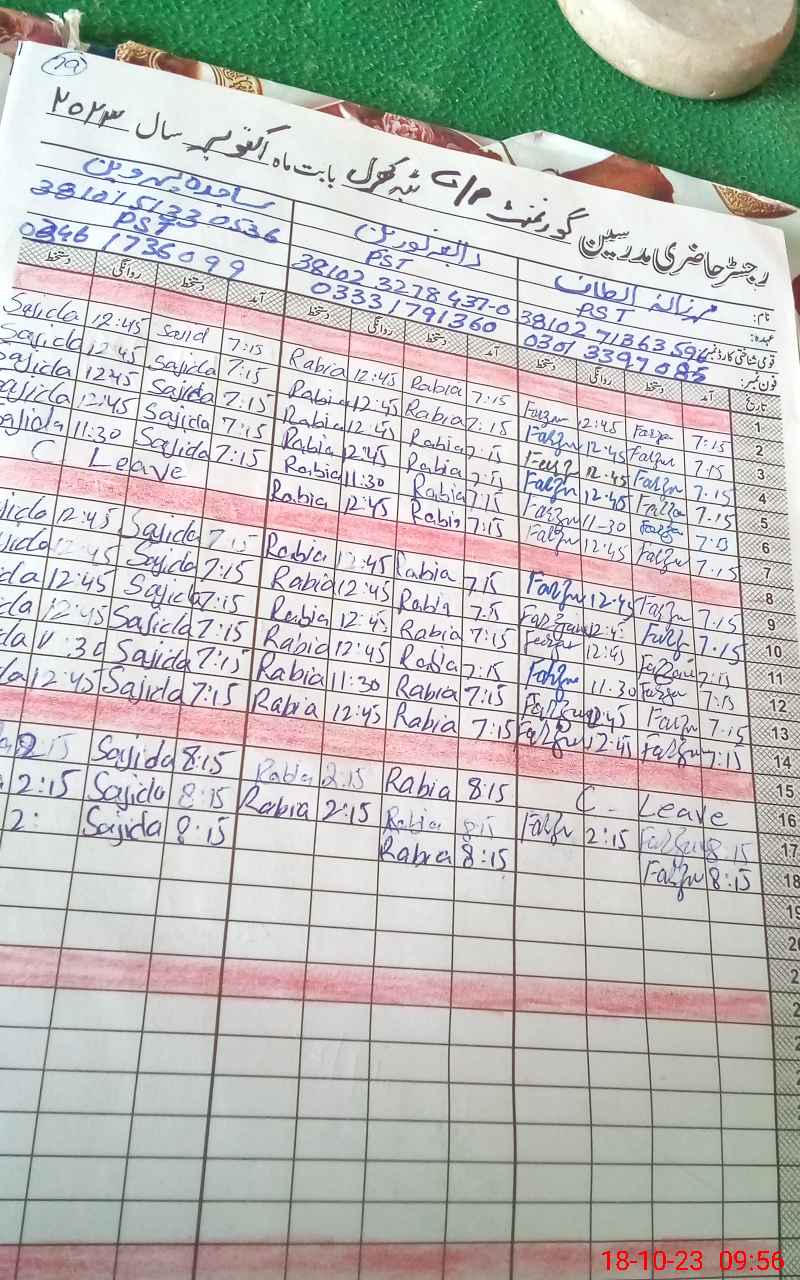 19
رجسٹر حاضری مدرسین گورنمنٹ G/P ٹبہ کھرل بابت ماہ اکتوبر سال ۲۰۲۳
نام: مہرزالہ الطاف
رابعہ نورین
ساجدہ پروین
عہدہ: PST
PST
PST
قومی شناختی کارڈ نمبر: 38102 71363 596
38102 3278 437-0
38101 5133 0536
فون نمبر: 0301 3397 085
0333 1791360
0346 1736099
تاریخ آمد دستخط روانگی دستخط آمد دستخط روانگی دستخط آمد دستخط روانگی دستخط
1
Sajida 12:45 Sajid 7:15 Rabia 12:45 Rabia 7:15 Farzn 12:45 Farzn 7:15 2
Sajida 12:45 Sajida 7:15 Rabia 12:45 Rabia 7:15 Farzn 12:45 Farzn 7:15 3
Sajida 12:45 Sajida 7:15 Rabia 12:45 Rabia 7:15 Farzn 12:45 Farzn 7:15 4
Sajida 12:45 Sajida 7:15 Rabia 12:45 Rabia 7:15 Farzn 12:45 Farzn 7:15 5
Sajida 11:30 Sajida 7:15 Rabia 11:30 Rabia 7:15 Farzn 11-30 Farzn 7:15 6
C Leave Rabia 12:45 Rabia 7:15 Farzn 12:45 Farzn 7:15 7
8
jida 12:45 Sajida 7:15 Rabia 12:45 Rabia 7:15 Farzn 12:45 Farzn 7:15 9
jida 12:45 Sajida 7:15 Rabia 12:45 Rabia 7:15 Farzan 12:4 Farz 7:15 10
ida 12:45 Sajida 7:15 Rabia 12:45 Rabia 7:15 Farzn 12:45 Farzan 7:15 11
ida 12:45 Sajida 7:15 Rabia 12:45 Rabia 7:15 Farzn 11:30 Farzn 7:15 12
da 11:30 Sajida 7:15 Rabia 11:30 Rabia 7:15 Farzn 12:45 Farzn 7:15 13
da 12:45 Sajida 7:15 Rabia 12:45 Rabia 7:15 Farzn 12:45 Farzn 7:15 14
15
2:15 Sajida 8:15 Rabia 2:15 Rabia 8:15 C - Leave 16
2:15 Sajida 8:15 Rabia 2:15 Rabia 8:15 Farzn 2:15 Farzan 8:15 17
2: Sajida 8:15 Rabia 8:15 Farzn 8:15 18
19
20
2
2
18-10-23 09:56